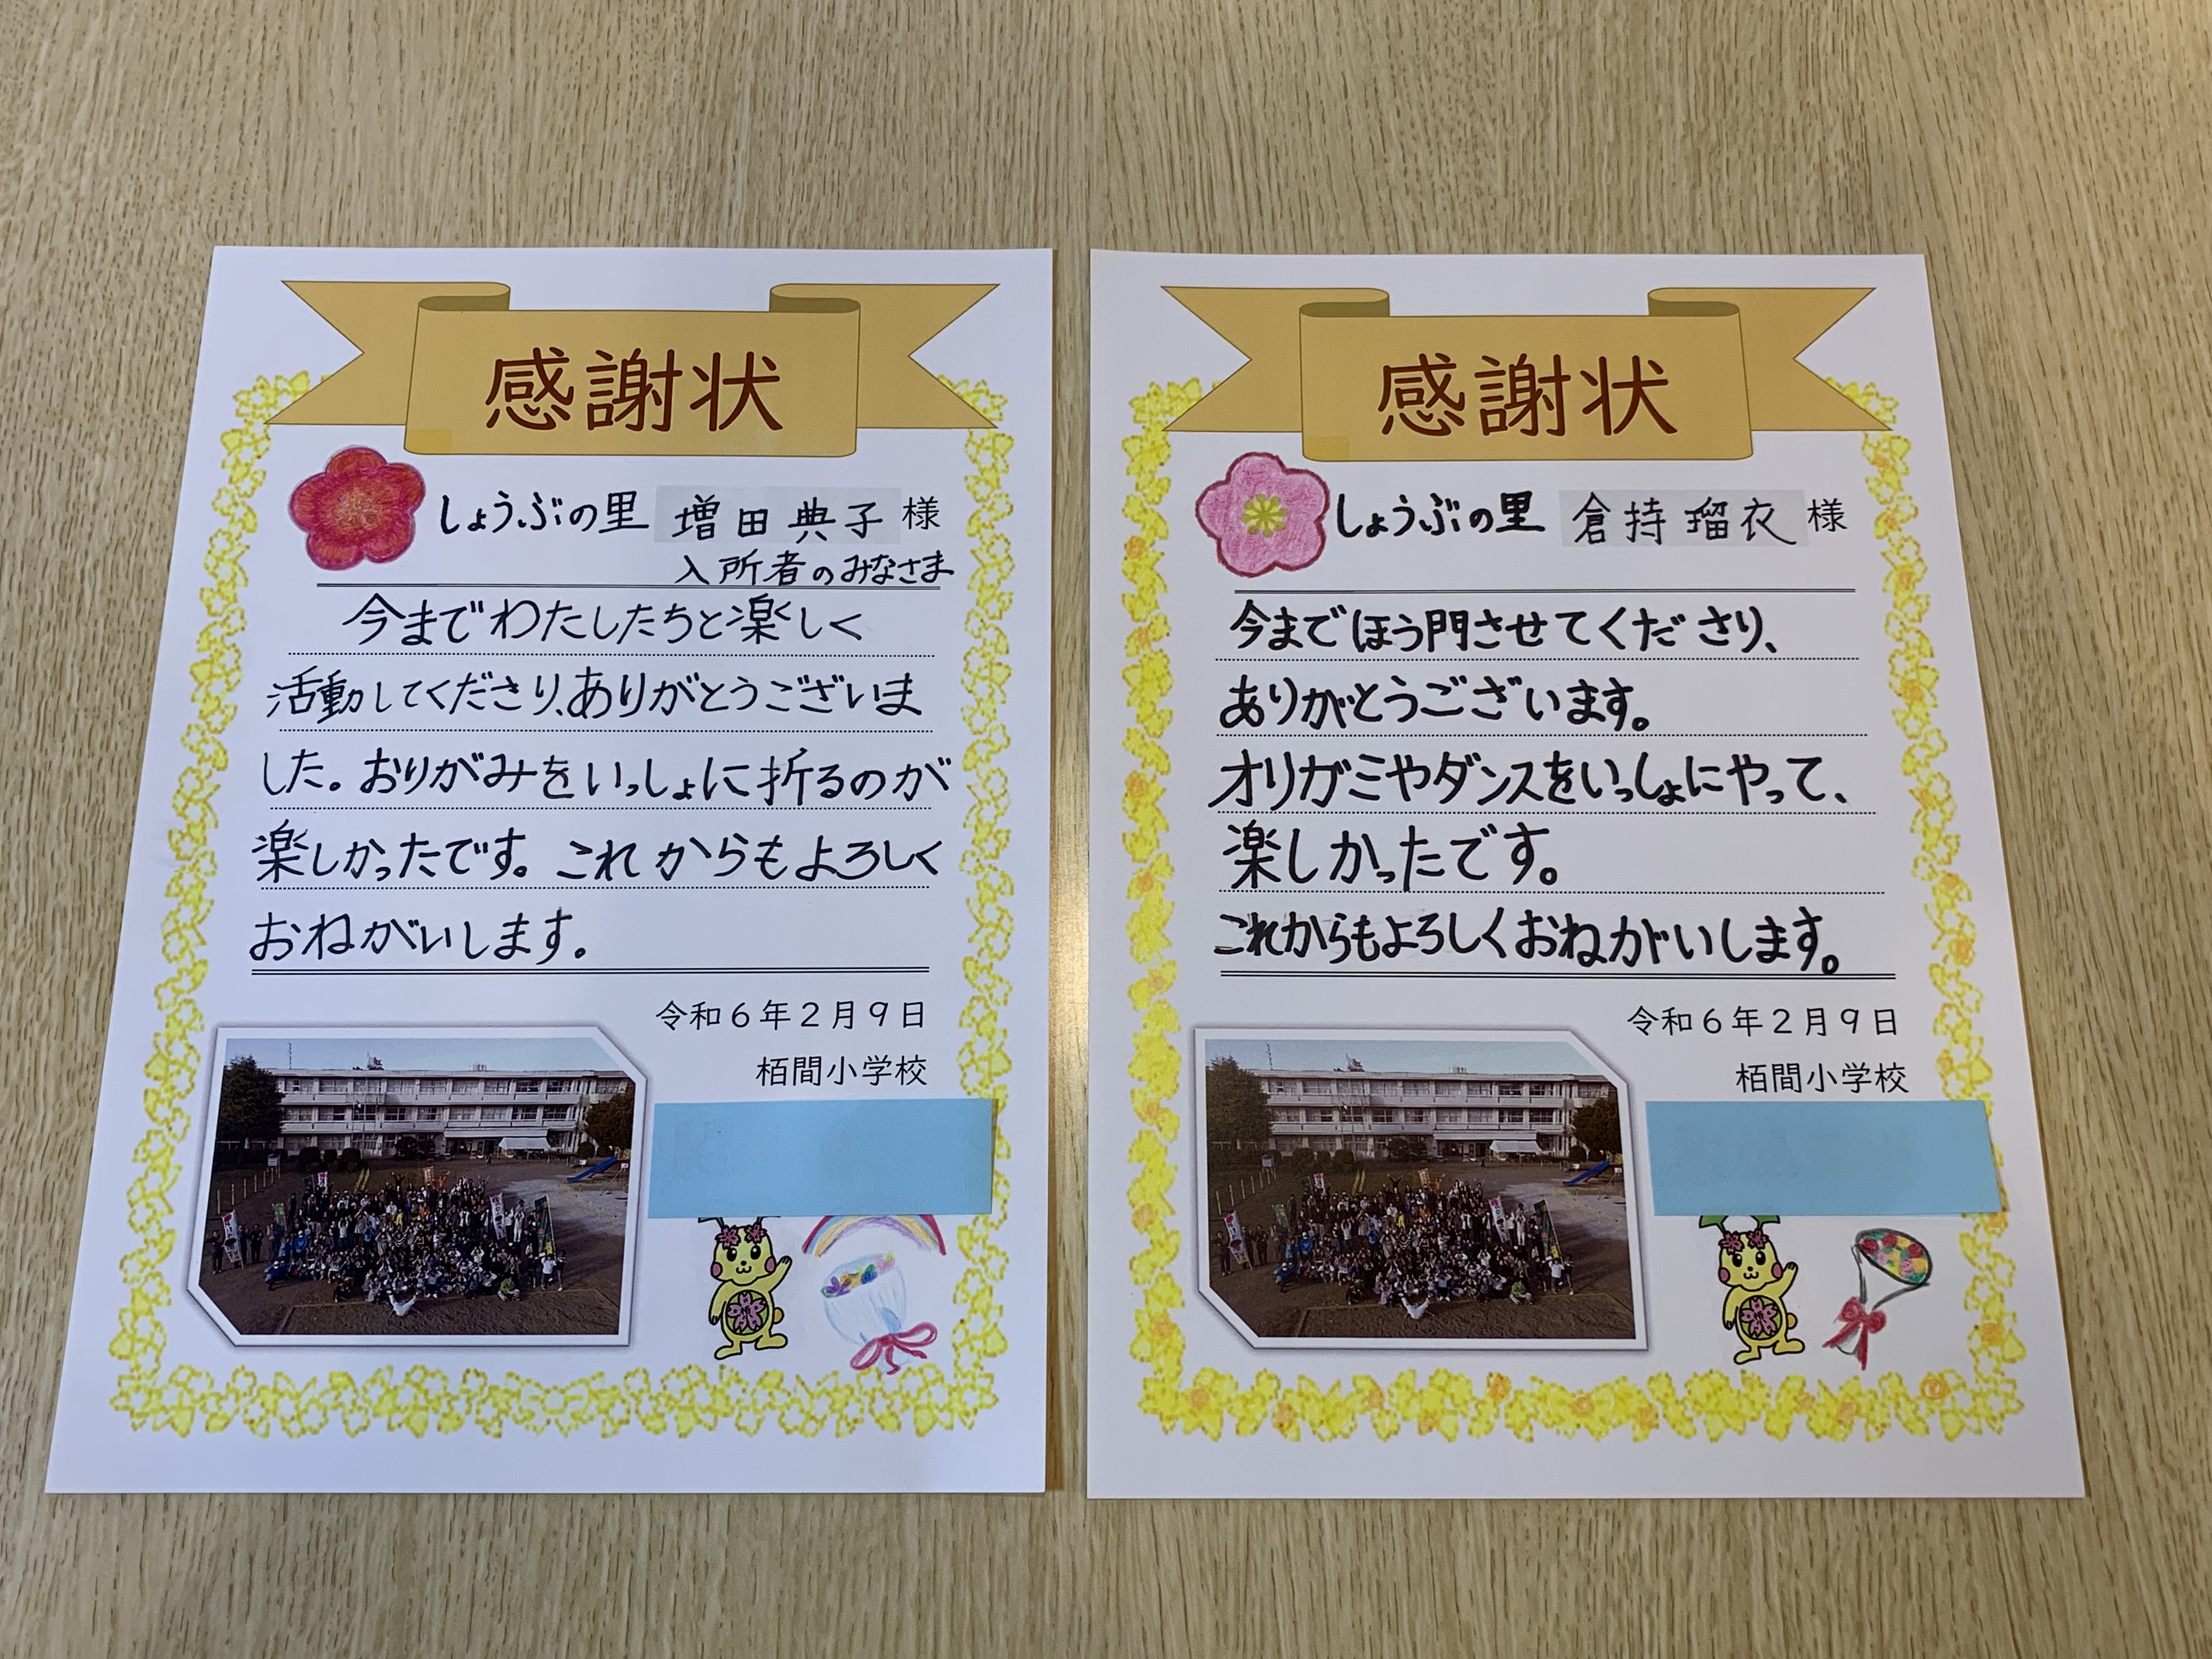 感謝状
しょうぶの里 増田典子 様
入所者のみなさま
今までわたしたちと楽しく
活動してくださり、ありがとうございま
した。おりがみをいっしょに折るのが
楽しかったです。これからもよろしく
おねがいします。
令和6年2月9日
栢間小学校
感謝状
しょうぶの里 倉持瑠衣 様
今までほう門させてくださり、
ありがとうございます。
オリガミやダンスをいっしょにやって、
楽しかったです。
これからもよろしくおねがいします。
令和6年2月9日
栢間小学校